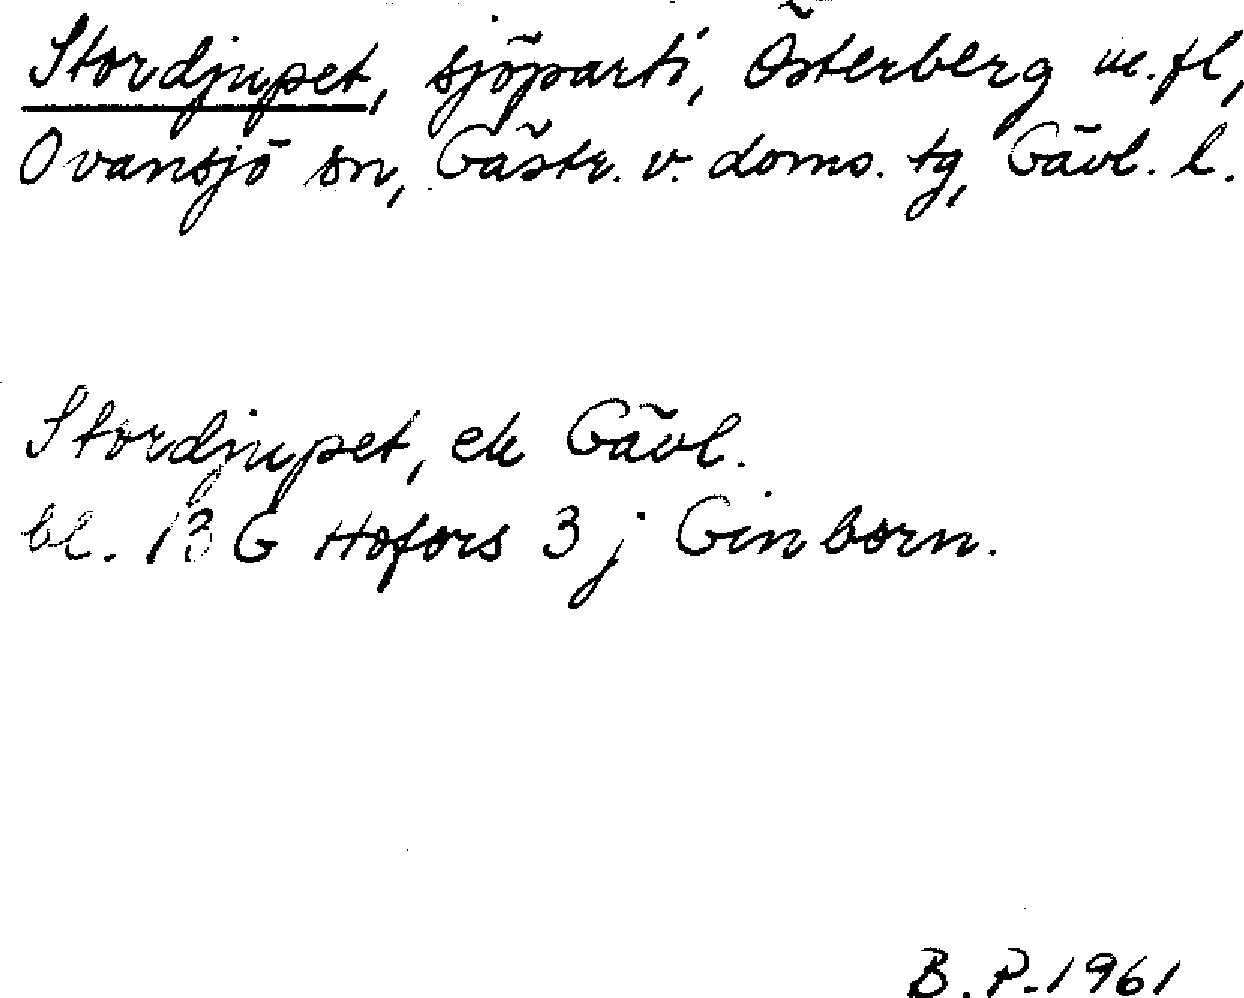 Stordjupet, sjöparti, Österberg m.fl,
Ovansjö sn, Gästr. v. doms. tg, Gävl. l.
Stordjupet, ek Gävl.
bl. 13 G Hofors 3 j Ginborn.
B.P.1961